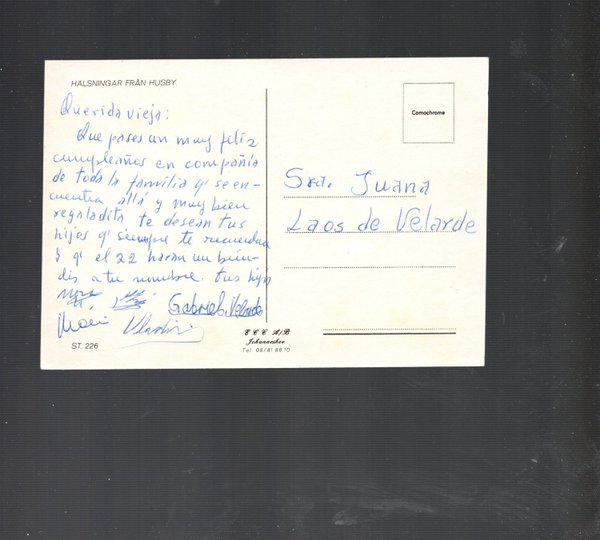 HÄLSNINGAR FRÅN HUSBY
Querida vieja:
Que pases un muy feliz
cumpleaños en compañía
de toda la familia q' se en-
cuentra allá y muy bien
regaladita te desean tus
hijos q' siempre te recuerdan
q' el 22 harán un brin-
dis a tu nombre. tus hijos
Gabriel S. Velarde
María Vladimir
ST. 226
Comochrome
Sra. Juana
Laos de Velarde
E C C A/B
Johanneshov
Tel. 08/81 88 10